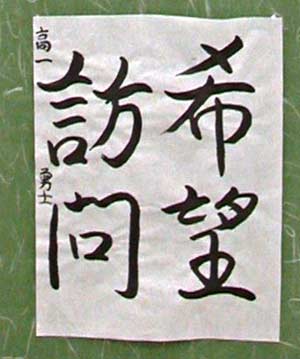 希望
訪問
高一 勇士